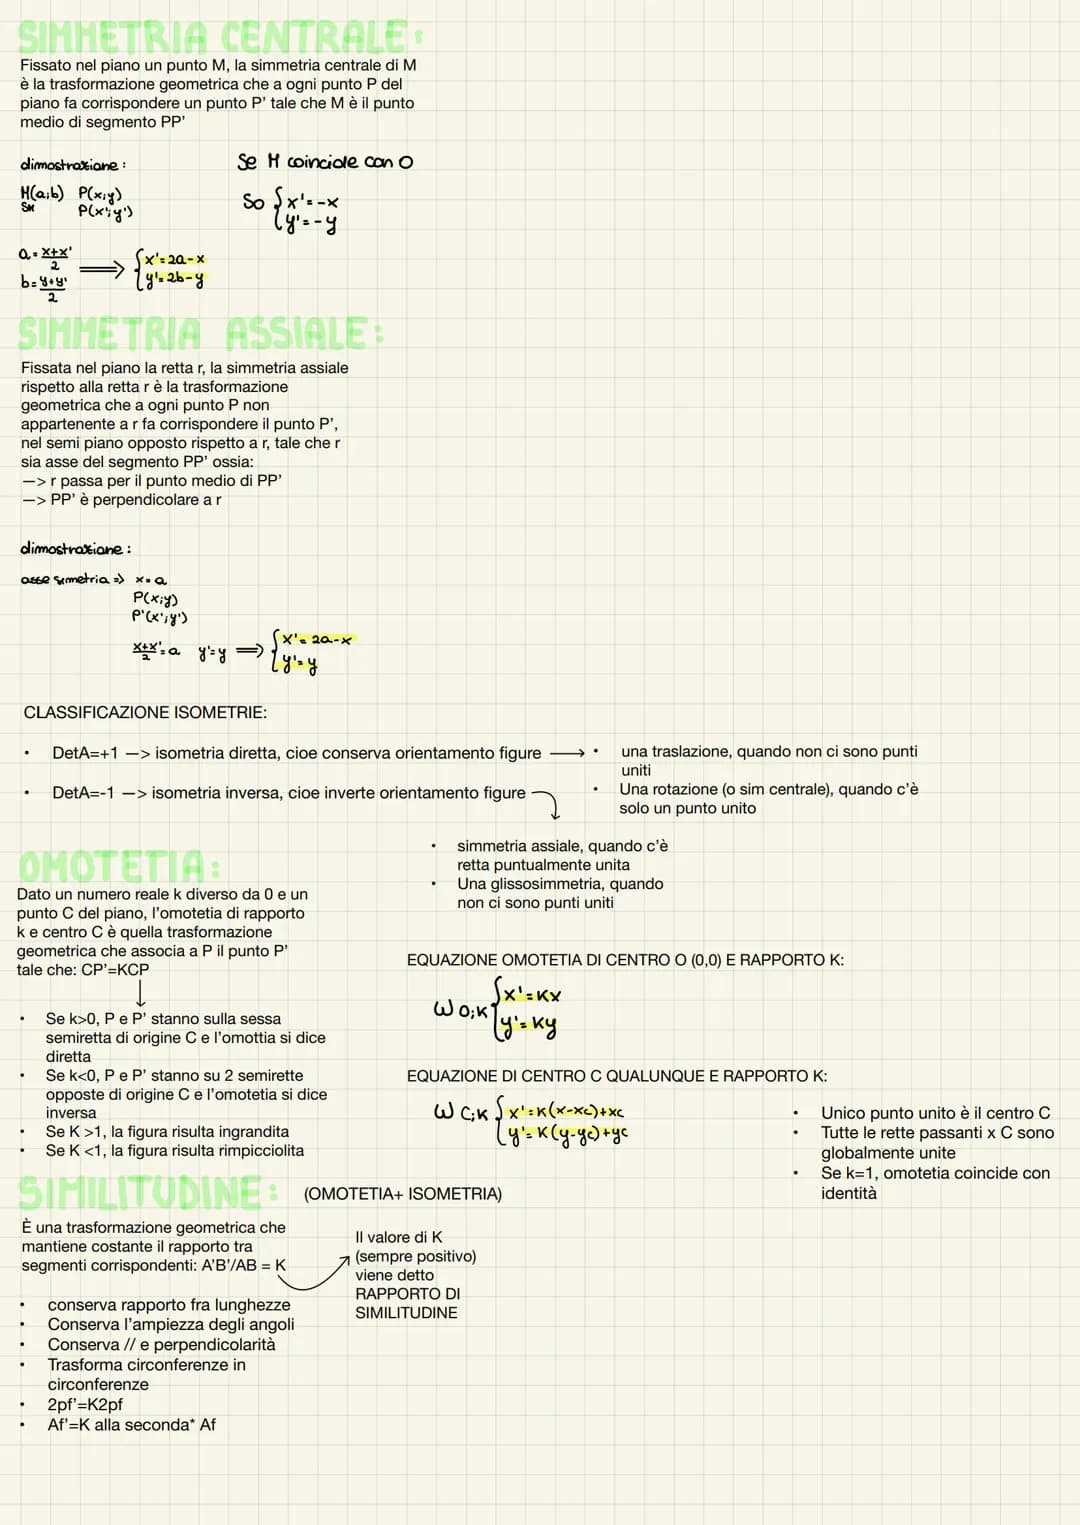 SIMMETRIA CENTRALE:
Fissato nel piano un punto M, la simmetria centrale di M
è la trasformazione geometrica che a ogni punto P del
piano fa corrispondere un punto P' tale che M è il punto
medio di segmento PP'
dimostrazione:
M(a;b) P(x;y)
SM P(x';y')
a = x+x'/2
b = y+y'/2
⟹ { x'=2a-x
y'=2b-y
Se M coincide con O
SO { x'=-x
y'=-y
SIMMETRIA ASSIALE:
Fissata nel piano la retta r, la simmetria assiale
rispetto alla retta r è la trasformazione
geometrica che a ogni punto P non
appartenente a r fa corrispondere il punto P',
nel semi piano opposto rispetto a r, tale che r
sia asse del segmento PP' ossia:
—> r passa per il punto medio di PP'
—> PP' è perpendicolare a r
dimostrazione:
asse simmetria => x=a
P(x;y)
P'(x';y')
x+x'/2=a y'=y ⟹ { x'=2a-x
y'=y
CLASSIFICAZIONE ISOMETRIE:
• DetA=+1 —> isometria diretta, cioe conserva orientamento figure ⟶
• una traslazione, quando non ci sono punti
uniti
• Una rotazione (o sim centrale), quando c'è
solo un punto unito
• DetA=-1 —> isometria inversa, cioe inverte orientamento figure
• simmetria assiale, quando c'è
retta puntualmente unita
• Una glissosimmetria, quando
non ci sono punti uniti
OMOTETIA:
Dato un numero reale k diverso da 0 e un
punto C del piano, l'omotetia di rapporto
k e centro C è quella trasformazione
geometrica che associa a P il punto P'
tale che: CP'=KCP
• Se k>0, P e P' stanno sulla sessa
semiretta di origine C e l'omottia si dice
diretta
• Se k<0, P e P' stanno su 2 semirette
opposte di origine C e l'omotetia si dice
inversa
• Se K >1, la figura risulta ingrandita
• Se K <1, la figura risulta rimpicciolita
EQUAZIONE OMOTETIA DI CENTRO O (0,0) E RAPPORTO K:
ω O;K { x'=Kx
y'=Ky
EQUAZIONE DI CENTRO C QUALUNQUE E RAPPORTO K:
ω C;K { x'=K(x-xc)+xc
y'=K(y-yc)+yc
• Unico punto unito è il centro C
• Tutte le rette passanti x C sono
globalmente unite
• Se k=1, omotetia coincide con
identità
SIMILITUDINE: (OMOTETIA+ ISOMETRIA)
È una trasformazione geometrica che
mantiene costante il rapporto tra
segmenti corrispondenti: A'B'/AB = K
Il valore di K
(sempre positivo)
viene detto
RAPPORTO DI
SIMILITUDINE
• conserva rapporto fra lunghezze
• Conserva l'ampiezza degli angoli
• Conserva // e perpendicolarità
• Trasforma circonferenze in
circonferenze
• 2pf'=K2pf
• Af'=K alla seconda* Af